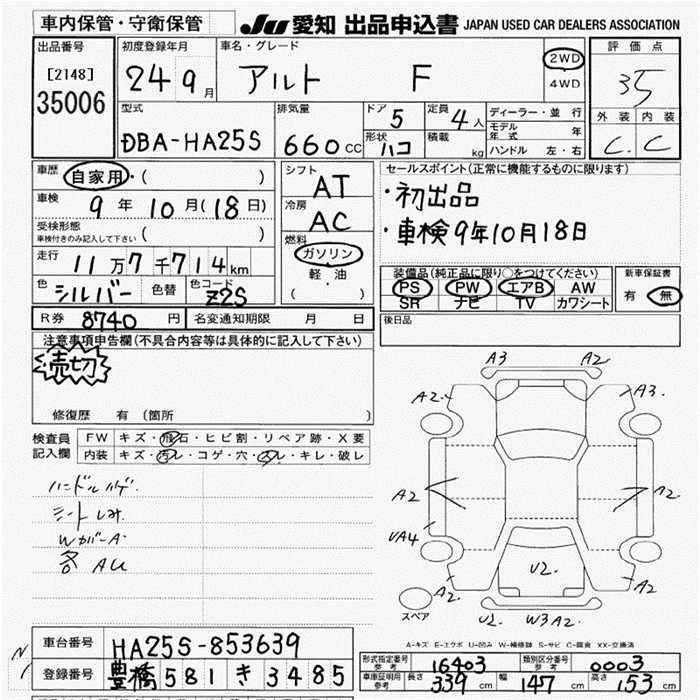 車内保管・守衛保管
JU 愛知 出品申込書 JAPAN USED CAR DEALERS ASSOCIATION
出品番号
[2148]
35006
初度登録年月
24 9月
車名・グレード
アルト F
2WD
4WD
評価点
3.5
外装 内装
C. C
型式
DBA-HA25S
排気量
660CC
ドア
5
定員
4人
形状
ハコ
積載
kg
ディーラー・並行
モデル年式 年
ハンドル 左・右
車歴
自家用・( )
車検
9年10月(18日)
受検形態
車検付きのみ記入して下さい ( )
走行
11万7千714km
色
シルバー
色替
色コード
Z2S
シフト
AT
冷房
AC
燃料
ガソリン
軽・油
( )
セールスポイント(正常に機能するものに限ります)
・初出品
・車検9年10月18日
装備品(純正品に限り○をつけてください)
PS PW エアB AW
SR ナビ TV カワシート
新車保証書
有 無
R券 8740円
名変通知期限 月 日
後日品
注意事項申告欄(不具合内容等は具体的に記入して下さい)
売切
修復歴 有 (箇所 )
検査員記入欄
FW キズ・飛石・ヒビ割・リペア跡・X要
内装 キズ・汚レ・コゲ・穴・スレ・キレ・破レ
ハンドルハゲ
シートしみ
WカバーA
各 AU
A3 A2
A2. A3.
A2 A2
UA4
U2.
A2 A2
スペア
U2. W3 A2.
A-キズ E-エクボ U-凹み W-補修跡 S-サビ C-腐食 XX-交換済
車台番号
HA25S-853639
登録番号
豊橋 581 き 3485
形式指定番号 参考
16403
類別区分番号 参考
0003
車庫証明用 参考
長さ 339cm 幅 147cm 高さ 153cm